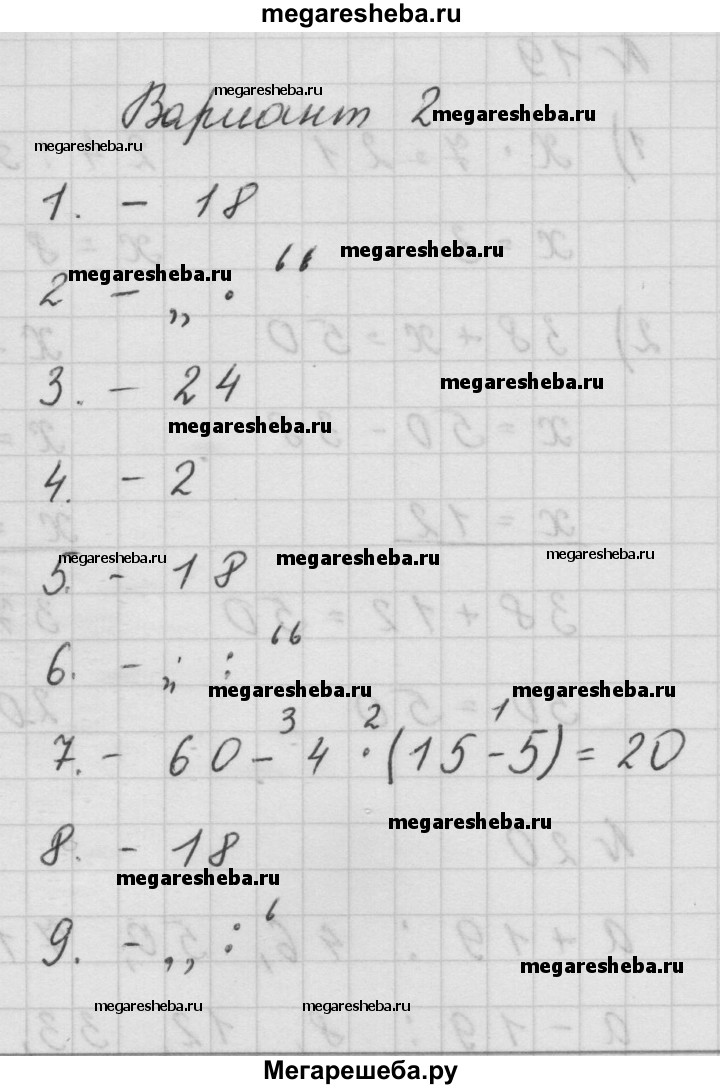 megaresheba.ru
megaresheba.ru
Вариант 2 megaresheba.ru
megaresheba.ru
1. - 18
megaresheba.ru
megaresheba.ru
2 - „ · “
3. - 24
megaresheba.ru
megaresheba.ru
4. - 2
megaresheba.ru megaresheba.ru megaresheba.ru
5. - 18
6. - „ : “
megaresheba.ru megaresheba.ru
3 2 1
7. - 60 - 4 · (15 - 5) = 20
megaresheba.ru
8. - 18
megaresheba.ru
9. - „ : “
megaresheba.ru
megaresheba.ru megaresheba.ru
Мегарешеба.ру